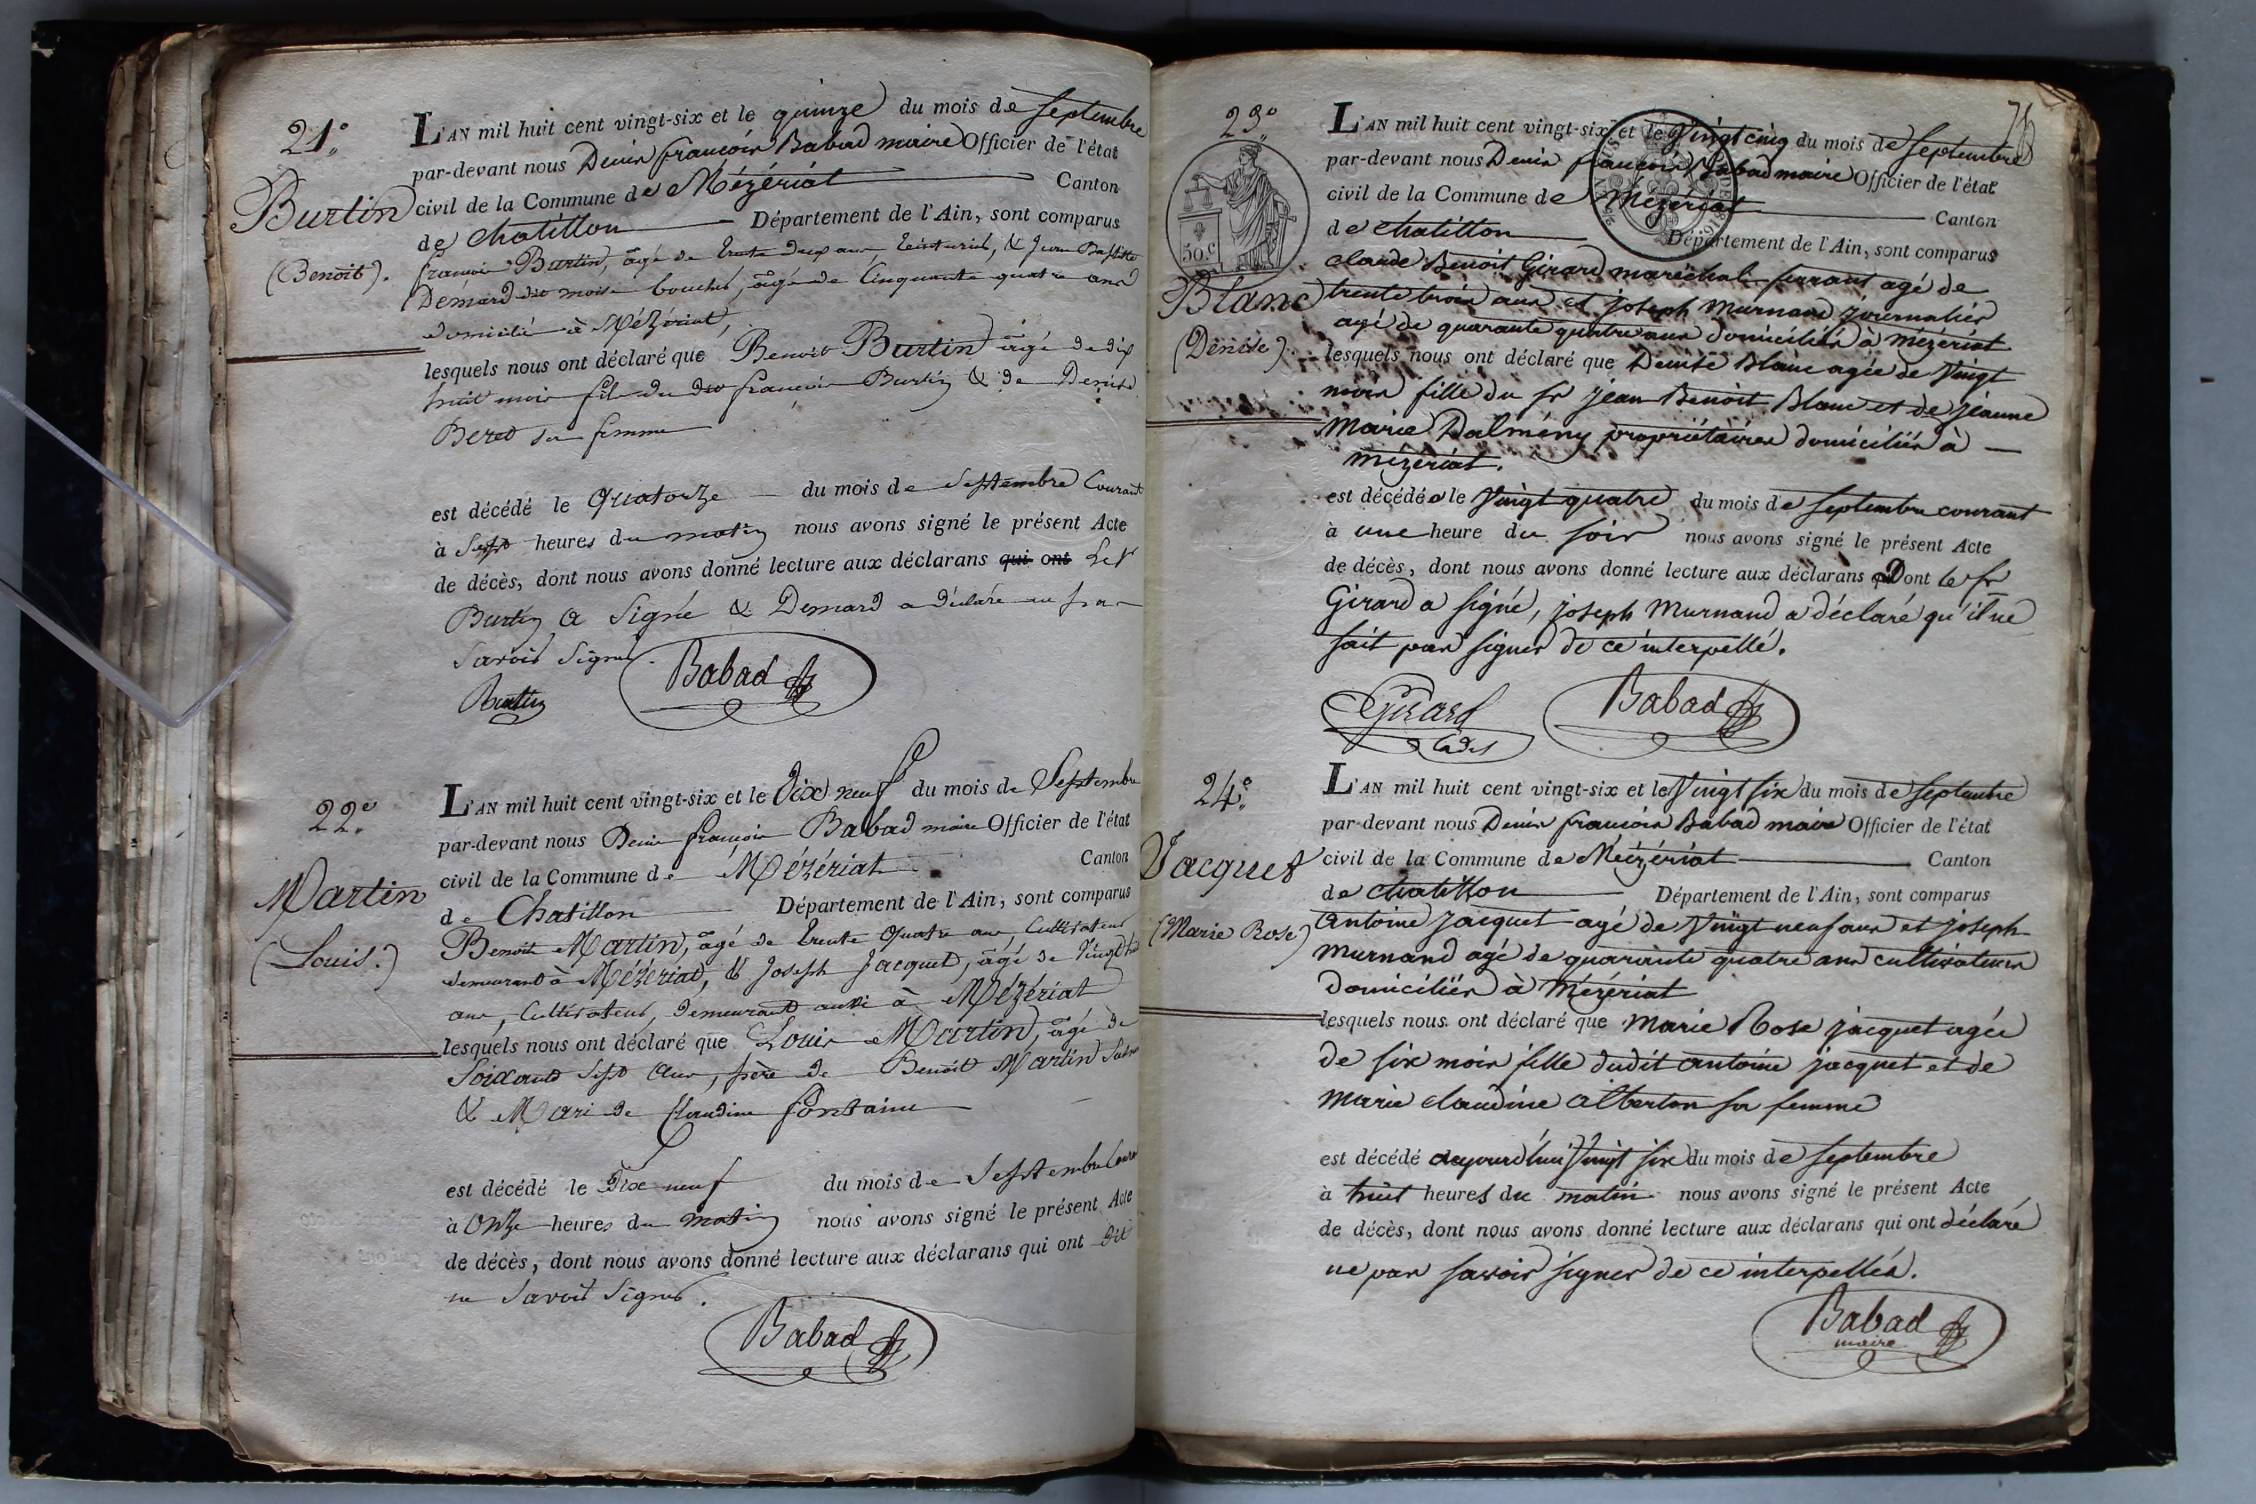 21°
Burtin
(Benoit).
L'AN mil huit cent vingt-six et le quinze du mois de septembre
par-devant nous Denis françois Babad maire Officier de l'état
civil de la Commune de Mézériat Canton
de Chatillon Département de l'Ain, sont comparus
françois Burtin, âgé de trente deux ans, & Jean Baptiste
Démard boucher, âgé de Cinquante quatre ans
domicilié à Mézériat,
lesquels nous ont déclaré que Benoit Burtin âgé de dix
huit mois fils du dit françois Burtin & de Denise
Beret sa femme
est décédé le Quatorze du mois de Septembre Courant
à Sept heures du matin nous avons signé le présent Acte
de décès, dont nous avons donné lecture aux déclarans qui ont Le sr
Burtin a Signé & Demard a déclaré ne pas
Savoir Signer.
Burtin Babad
22e
Martin
(Louis.)
L'AN mil huit cent vingt-six et le Dix neuf du mois de Septembre
par-devant nous Denis françois Babad maire Officier de l'état
civil de la Commune de Mézériat Canton
de Chatillon Département de l'Ain, sont comparus
Benoit Martin, âgé de trente Quatre ans, Cultivateur
demeurant à Mézériat, & Joseph Jacquet, âgé de Vingt huit
ans, Cultivateur, demeurant aussi à Mézériat
lesquels nous ont déclaré que Louis Martin, âgé de
Soixante Sept ans, père de Benoit Martin
& Mari de Claudine fontaine
est décédé le Dix neuf du mois de Septembre Courant
à Onze heures du matin nous avons signé le présent Acte
de décès, dont nous avons donné lecture aux déclarans qui ont dit
ne Savoir Signer.
Babad
75
23°
50.c
Blanc
(Denise)
L'AN mil huit cent vingt-six et le Vingt cinq du mois de septembre
par-devant nous Denis françois Babad maire Officier de l'état
civil de la Commune de Mézériat Canton
de chatillon Département de l'Ain, sont comparus
claude Benoit Girard maréchal ferrant agé de
trente trois ans et joseph Murnand journalier
agé de quarante quatre ans domiciliés à Mézériat
lesquels nous ont déclaré que Denise Blanc agée de Vingt
mois fille du sr jean Benoit Blanc et de jeanne
Marie Dalmény propriétaires domiciliés à
Mézériat.
est décédée le Vingt quatre du mois de septembre courant
à une heure du soir nous avons signé le présent Acte
de décès, dont nous avons donné lecture aux déclarans Dont le sr
Girard a signé, joseph Murnand a déclaré qu'il ne
sait pas signer de ce interpellé.
Girard Babad
Cadet
24°
Jacquet
(Marie Rose)
L'AN mil huit cent vingt-six et le Vingt six du mois de septembre
par-devant nous Denis françois Babad maire Officier de l'état
civil de la Commune de Mézériat Canton
de chatillon Département de l'Ain, sont comparus
Antoine jacquet agé de Vingt neuf ans et joseph
Murnand agé de quarante quatre ans cultivateurs
domiciliés à Mézériat
lesquels nous ont déclaré que Marie Rose jacquet agée
de six mois fille dudit antoine jacquet et de
Marie claudine alberton sa femme
est décédé aujourd'hui Vingt six du mois de septembre
à huit heures du matin nous avons signé le présent Acte
de décès, dont nous avons donné lecture aux déclarans qui ont déclaré
ne pas savoir signer de ce interpellés.
Babad
maire